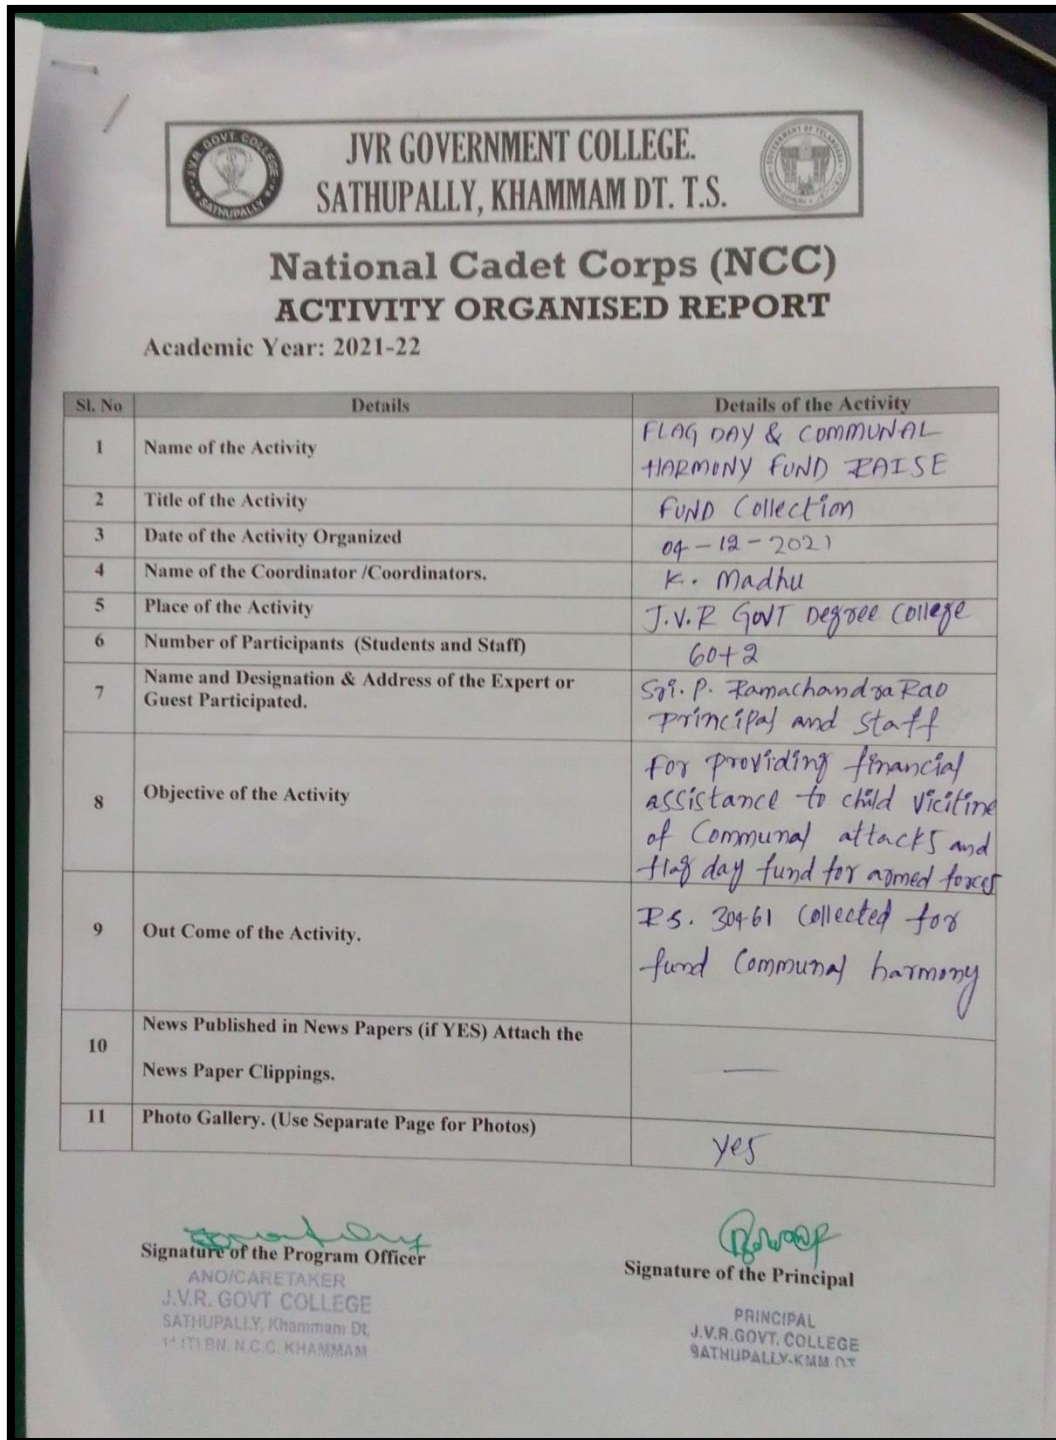 JVR GOVT. COLLEGE
SATHUPALLY
JVR GOVERNMENT COLLEGE.
SATHUPALLY, KHAMMAM DT. T.S.
GOVERNMENT OF TELANGANA
National Cadet Corps (NCC)
ACTIVITY ORGANISED REPORT
Academic Year: 2021-22
Sl. No Details Details of the Activity
1 Name of the Activity FLAG DAY & COMMUNAL
HARMONY FUND RAISE
2 Title of the Activity FUND Collection
3 Date of the Activity Organized 04-12-2021
4 Name of the Coordinator /Coordinators. K. Madhu
5 Place of the Activity J.V.R GOVT Degree College
6 Number of Participants (Students and Staff) 60+2
7 Name and Designation & Address of the Expert or
Guest Participated.
Sri. P. Ramachandra Rao
Principal and staff
8 Objective of the Activity
For providing financial
assistance to child vicitine
of Communal attacks and
flag day fund for armed forces
9 Out Come of the Activity.
RS. 30461 Collected for
fund Communal harmony
10 News Published in News Papers (if YES) Attach the
News Paper Clippings. —
11 Photo Gallery. (Use Separate Page for Photos) yes
Signature of the Program Officer
ANO/CARETAKER
J.V.R. GOVT COLLEGE
SATHUPALLY, Khammam Dt.
BN. N.C.C. KHAMMAM
Signature of the Principal
PRINCIPAL
J.V.R.GOVT. COLLEGE
SATHUPALLY-KMM DT